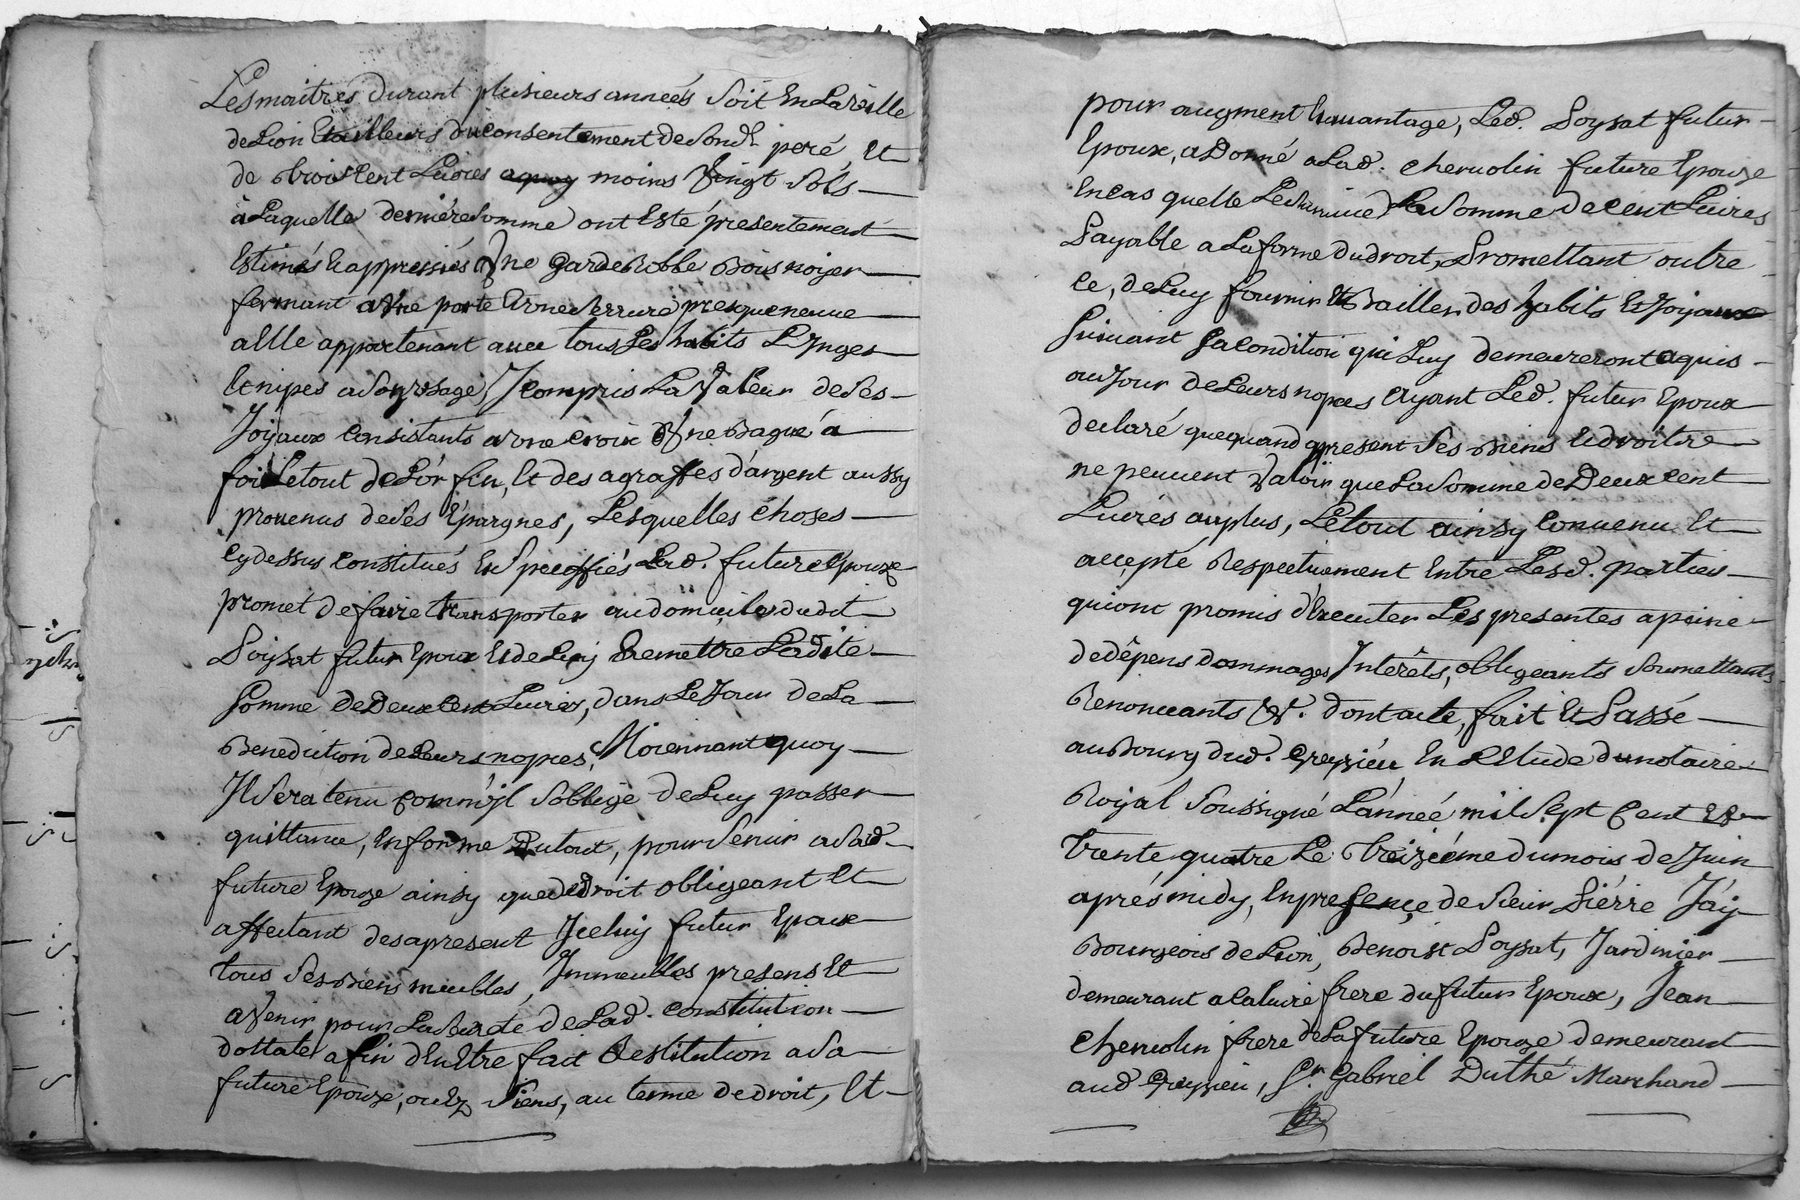 Les maitres durant plusieurs années soit En La ville
de Lion Et ailleurs du consentement de sond. peré, Et
de trois Cent Livres moins Vingt sols
à Laquelle derniére somme ont Esté présentement
Estimés Et appressiés Vne garde Robbe Bois noyer
fermant a Vne porte Et vne serrure presque neuue
a Elle appartenant auec tous Les habits Linges
Et nipes a son vsage, Y compris La Valeur de ses
Joyaux consistants a vne croix Et Vne Bague à
foi Le tout de L'or fin, Et des agraffes d'argent aussy
prouenus de ses Epargnes, Lesquelles choses
cy dessus constitués Et speciffiés Lad. future Epouze
promét de faire transporter au domicile dudit
Poysat futur Epoux Et de Luy Remettre Ladite
somme de Deux Cent Livres, dans Le Jour de La
Benediction de Leurs nopces, Moiennant quoy
Il sera tenu comm'jl s'obblige de Luy passer
quittance, En forme du tout, pour seruir a sad.
future Epouze ainsy que de droit obligeant Et
affectant des apresent Jceluy futur Epoux
tous ses Biens meubles, Jmmeubles presens Et
a Venir pour La sureté de Lad. constitution
dottale, afin d'En Etre fait Restitution a sa
future Epouze, ou Ez siens, au terme de droit, Et
pour augment Et auantage, Led. Poysat futur
Epoux, a Donné a Lad. cheruolin future Epouze
En cas quelle Le suruiue La somme de cent Livres
Payable a La forme du droit, Promettant outre
ce, de Luy fournir Et Bailler des habits Et Joyaux
suiuant sa condition qui Luy demeureront aquis
au Jour de Leurs nopces Ayant Led. futur Epoux
declaré que quand apresent ses Biens Et droits
ne peuuent Valoir que La somme de Deux cent
Livres au plus, Le tout ainsy conuenu Et
accepté Respectiuement Entre Lesd. parties
qui ont promis d'Executer Les presentes a peine
de dépens dommages Intérêts, obligeants soumettants
Renonceants &. dont acte, fait Et Passé
au Bourg dud. Grezieu En L'Etude du notaire
Royal soussigné L'année mil sept cent Et
trente quatre Le treiziéme du mois de Juin
aprés midy, En presençe de sieur Piérre Jay
Bourgeois de Lion, Benoist Poysat, Jardinier
demeurant a frere du futur Epoux, Jean
cheruolin frere de La future Epouze demeurant
aud Grezieu, Sr. Gabriel Duthé Marchand